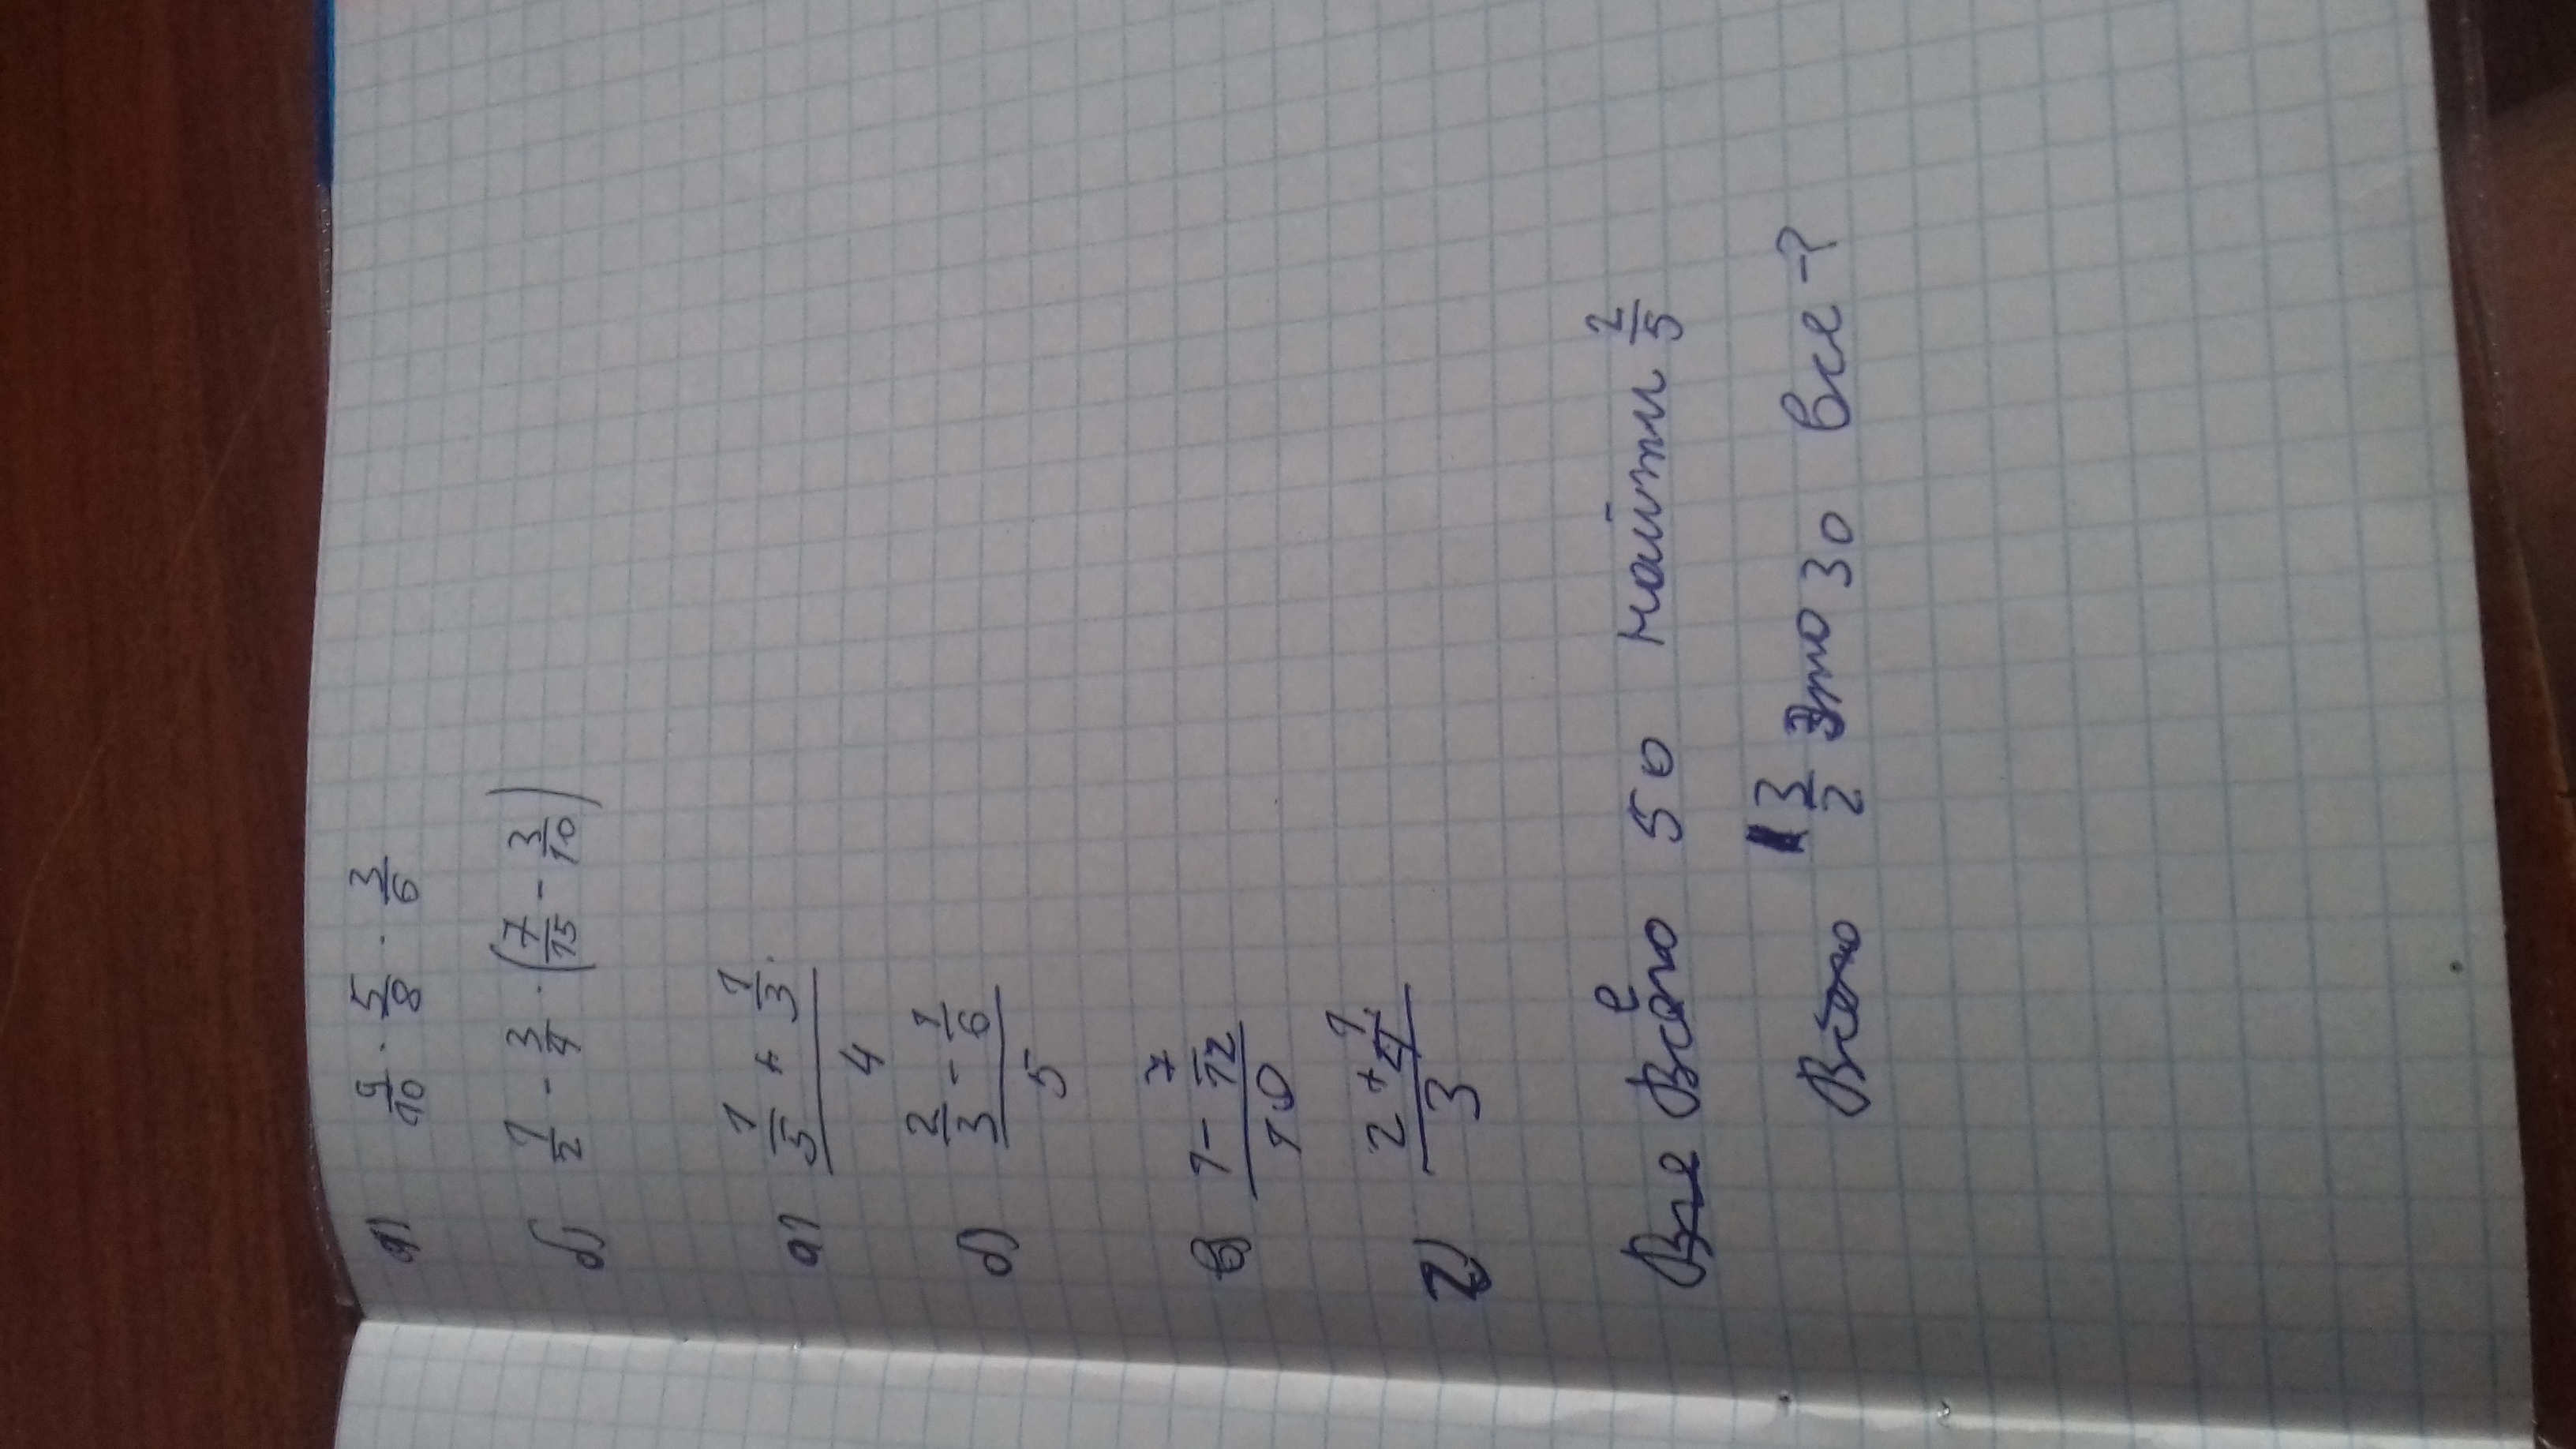 а) 9/10 · 5/8 · 3/6
б) 1/2 - 3/4 · (7/15 - 3/10)
а) (1/5 + 1/3) / 4
б) (2/3 - 1/6) / 5
в) (1 - 7/12) / 10
г) (2 + 1/4) / 3
Все Всего 50 найти 2/5
Всего 3/2 это 30 все - ?